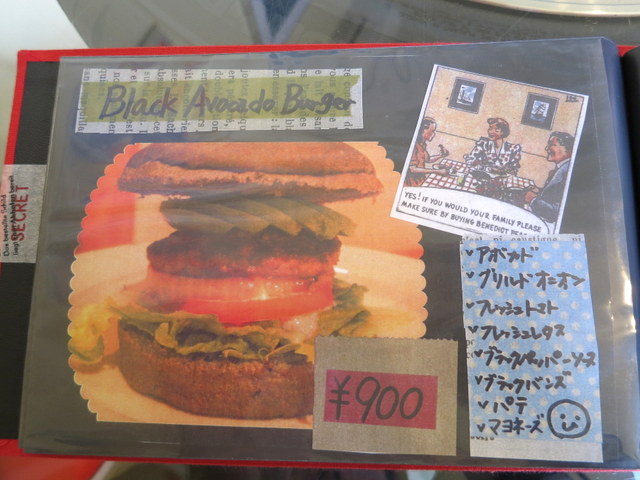 Black Avocado Burger
YES! IF YOU WOULD YOUR FAMILY PLEASE
MAKE SURE BY BUYING BENEDICT
アボカド
グリルドオニオン
フレッシュトマト
フレッシュレタス
ブラックペッパーソース
ブラックバンズ
パテ
マヨネーズ
¥900
SECRET